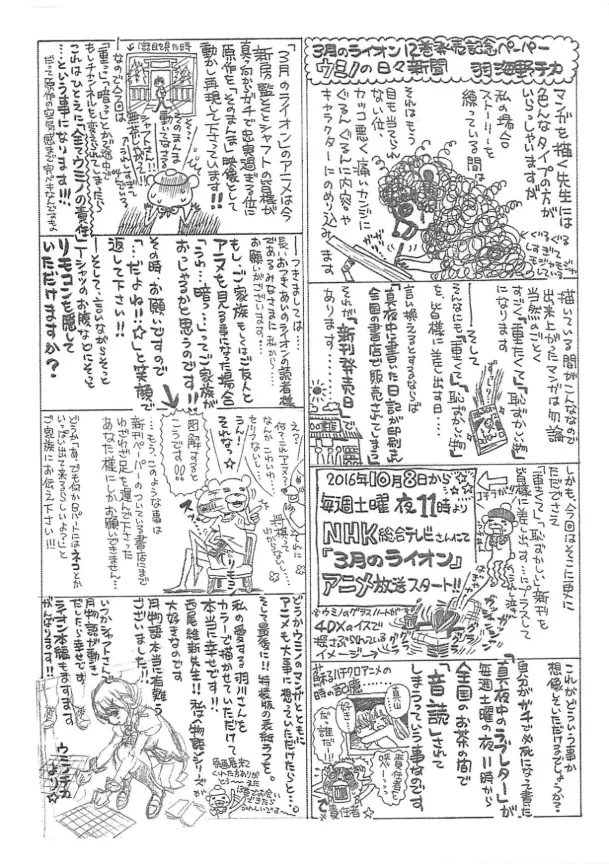 3月のライオン12巻発売記念ペーパー
ウミノの日々新聞 羽海野チカ
マンガを描く先生には
色んなタイプの方が
いらっしゃいますが
私の場合
ストーリーを
練っている間は
それはもう
目も当てられ
ない位、
カッコ悪く痛いカンジに
ぐるんぐるんに内容や
キャラクターにのめり込みます
描いている間がこんななので
出来上がったマンガは勿論
当然のごとく
すごく「重たくて」「恥ずかしい物」
になります
そして
そんなにも「重くて」「恥ずかしい物」
を、皆様に差し出す日…
言い換えるとするならば
「真夜中に書いた日記が印刷され
全国の書店で販売されてしまう」
それが「新刊発売日」で
あります……
しかも、今回はそこに更に
ただでさえ
「重くて」「恥ずかしい」新刊を
皆様に差し出す…にプラスして
コチラが!!
2016年10月8日から
毎週土曜 夜11時より
NHK総合テレビさんにて
『3月のライオン』
アニメ放送スタート!!
※ウミノのグラスハートが
4DXのイスで
揺さぶられている
イメージ→
これがどういう事か
想像していただけるでしょうか?
自分がガチで必死になって書いた
「真夜中のラブレター」が
毎週土曜の夜11時から
全国のお茶の間で
「音読」されて
しまうっていう事なのです
蘇るハチクロアニメの
時の記憶
真山
好き!!
だっ誰だ!!
責任者を
呼べー!!
責任者☆
「3月のライオン」のアニメは今
新房監督とシャフトの皆様が
真っ向からガチで忠実過ぎる位に
原作を「そのまんま」映像として
動かし再現して下さっています!!
1話目を見た時
そのまんま
動いてる!!
シャフトさん!!
なので今回は
「重っ」「暗っ」ってことが途中で
もしチャンネルを変えられてしまったら
これはひとえに「全てウミノの責任」
…という事になります!!!
だって原作の空気感まで完ペキなんですもん
―つきましては…
長いおつきあいのライオンの読者様
であるみなさまに、私から…
お願いがございまして…
もし、ご家族もしくはご友人と
アニメを見る事になった場合
「うっ…暗…」ってご家族が
おっしゃるかと思うのです!!
その時、お願いですので
「…だよね!!☆」と笑顔で
返して下さい!!
―そして、言いながらそっと
リモコンを隠して
いただけますか?
え?
何?このアニメ?
なんかこわいわ
うん!
それなっ☆
リモコン
図解すると
こうです!!
…もう、このような事は
新刊ペーパーのついている書店にまで
わざわざ足を運んで下さった
あなた様にしかお願いできません…
どうかっ あっでも何か日パートにはネコとか
いっぱい出て来るらしいよっ?と
ご家族にお伝え下さい!!!
どうかウミノのマンガとともに
アニメも大事に想っていただけたらと…。
そして最後に!!特装版の表紙ラフも。
私の愛する羽川さんを
カラーで描かせていただけて
本当に幸せです!!
西尾維新先生!!私は〈物語〉シリーズが
大好きなのです
〈月物語〉本当に有難う
ございました!!
いつかシャフトさんで
〈月物語〉が動き
だしたら幸せです。
ライオン本編もますます
がんばります!!
ウミノチカ
より☆